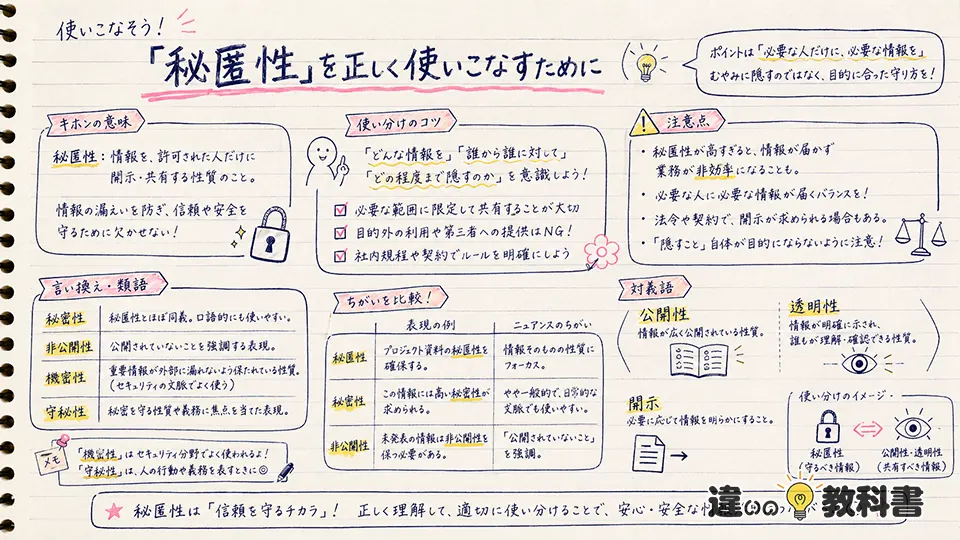 使いこなそう！
「秘匿性」を正しく使いこなすために
ポイントは「必要な人だけに、必要な情報を」
むやみに隠すのではなく、目的に合った守り方を！
キホンの意味
秘匿性：情報を、許可された人だけに
開示・共有する性質のこと。
情報の漏えいを防ぎ、信頼や安全を
守るために欠かせない！
使い分けのコツ
「どんな情報を」「誰から誰に対して」
「どの程度まで隠すのか」を意識しよう！
必要な範囲に限定して共有することが大切
目的外の利用や第三者への提供はNG！
社内規程や契約でルールを明確にしよう
注意点
・秘匿性が高すぎると、情報が届かず
業務が非効率になることも。
・必要な人に必要な情報が届くバランスを！
・法令や契約で、開示が求められる場合もある。
・「隠すこと」自体が目的にならないように注意！
言い換え・類語
秘密性 秘匿性とほぼ同義。口語的にも使いやすい。
非公開性 公開されていないことを強調する表現。
機密性 重要情報が外部に漏れないよう保たれている性質。
（セキュリティの文脈でよく使う）
守秘性 秘密を守る性質や義務に焦点を当てた表現。
メモ
「機密性」はセキュリティ分野でよく使われるよ！
「守秘性」は、人の行動や義務を表すときに◎
ちがいを比較！
表現の例 ニュアンスのちがい
秘匿性 プロジェクト資料の秘匿性を確保する。 情報そのものの性質にフォーカス。
秘密性 この情報には高い秘密性が求められる。 やや一般的で、日常的な文脈でも使いやすい。
非公開性 未発表の情報は非公開性を保つ必要がある。 「公開されていないこと」を強調。
対義語
公開性
情報が広く公開されている性質。
透明性
情報が明確に示され、
誰もが理解・確認できる性質。
開示
必要に応じて情報を明らかにすること。
使い分けのイメージ・
秘匿性
（守るべき情報）
公開性・透明性
（共有すべき情報）
秘匿性は「信頼を守るチカラ」！ 正しく理解して、適切に使い分けることで、安心・安全な
違いの教科書